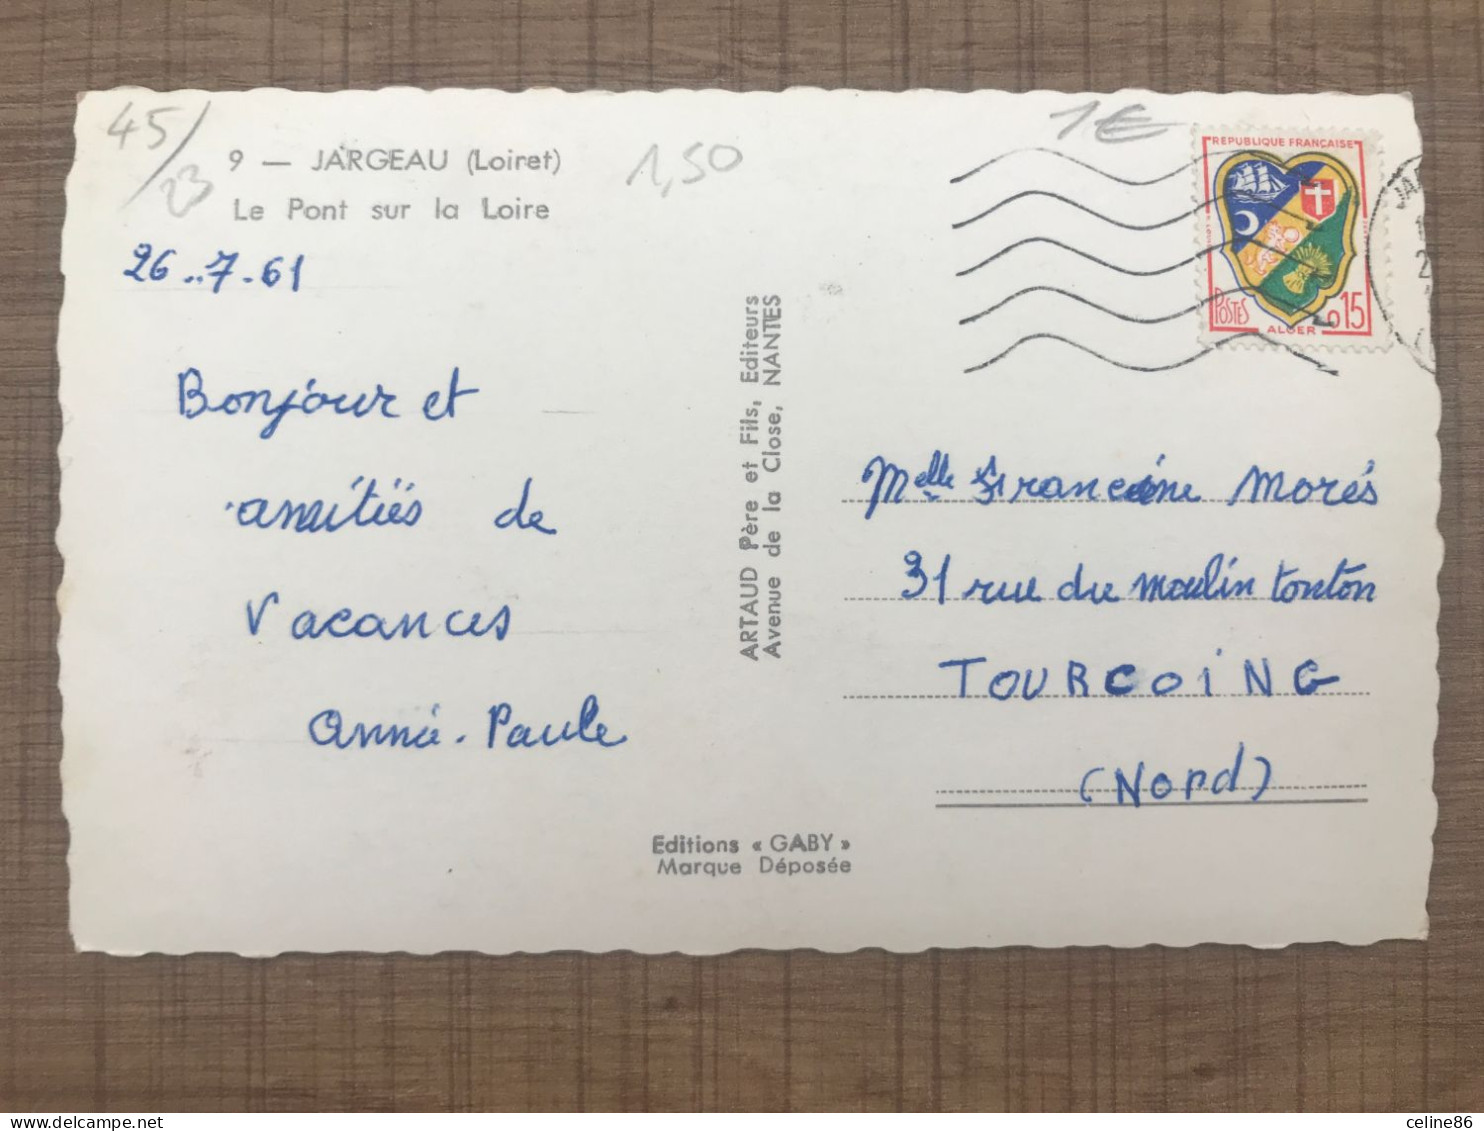 45/23
9 — JARGEAU (Loiret)
Le Pont sur la Loire
1,50
1€
26..7.61
Bonjour et
amitiés de
Vacances
Anne-Paule
ARTAUD Père et Fils, Editeurs
Avenue de la Close, NANTES
Editions « GABY »
Marque Déposée
REPUBLIQUE FRANÇAISE
POSTES
ALGER
0,15
Melle Francine Morès
31 rue du moulin tonton
TOURCOING
(Nord)
celine86